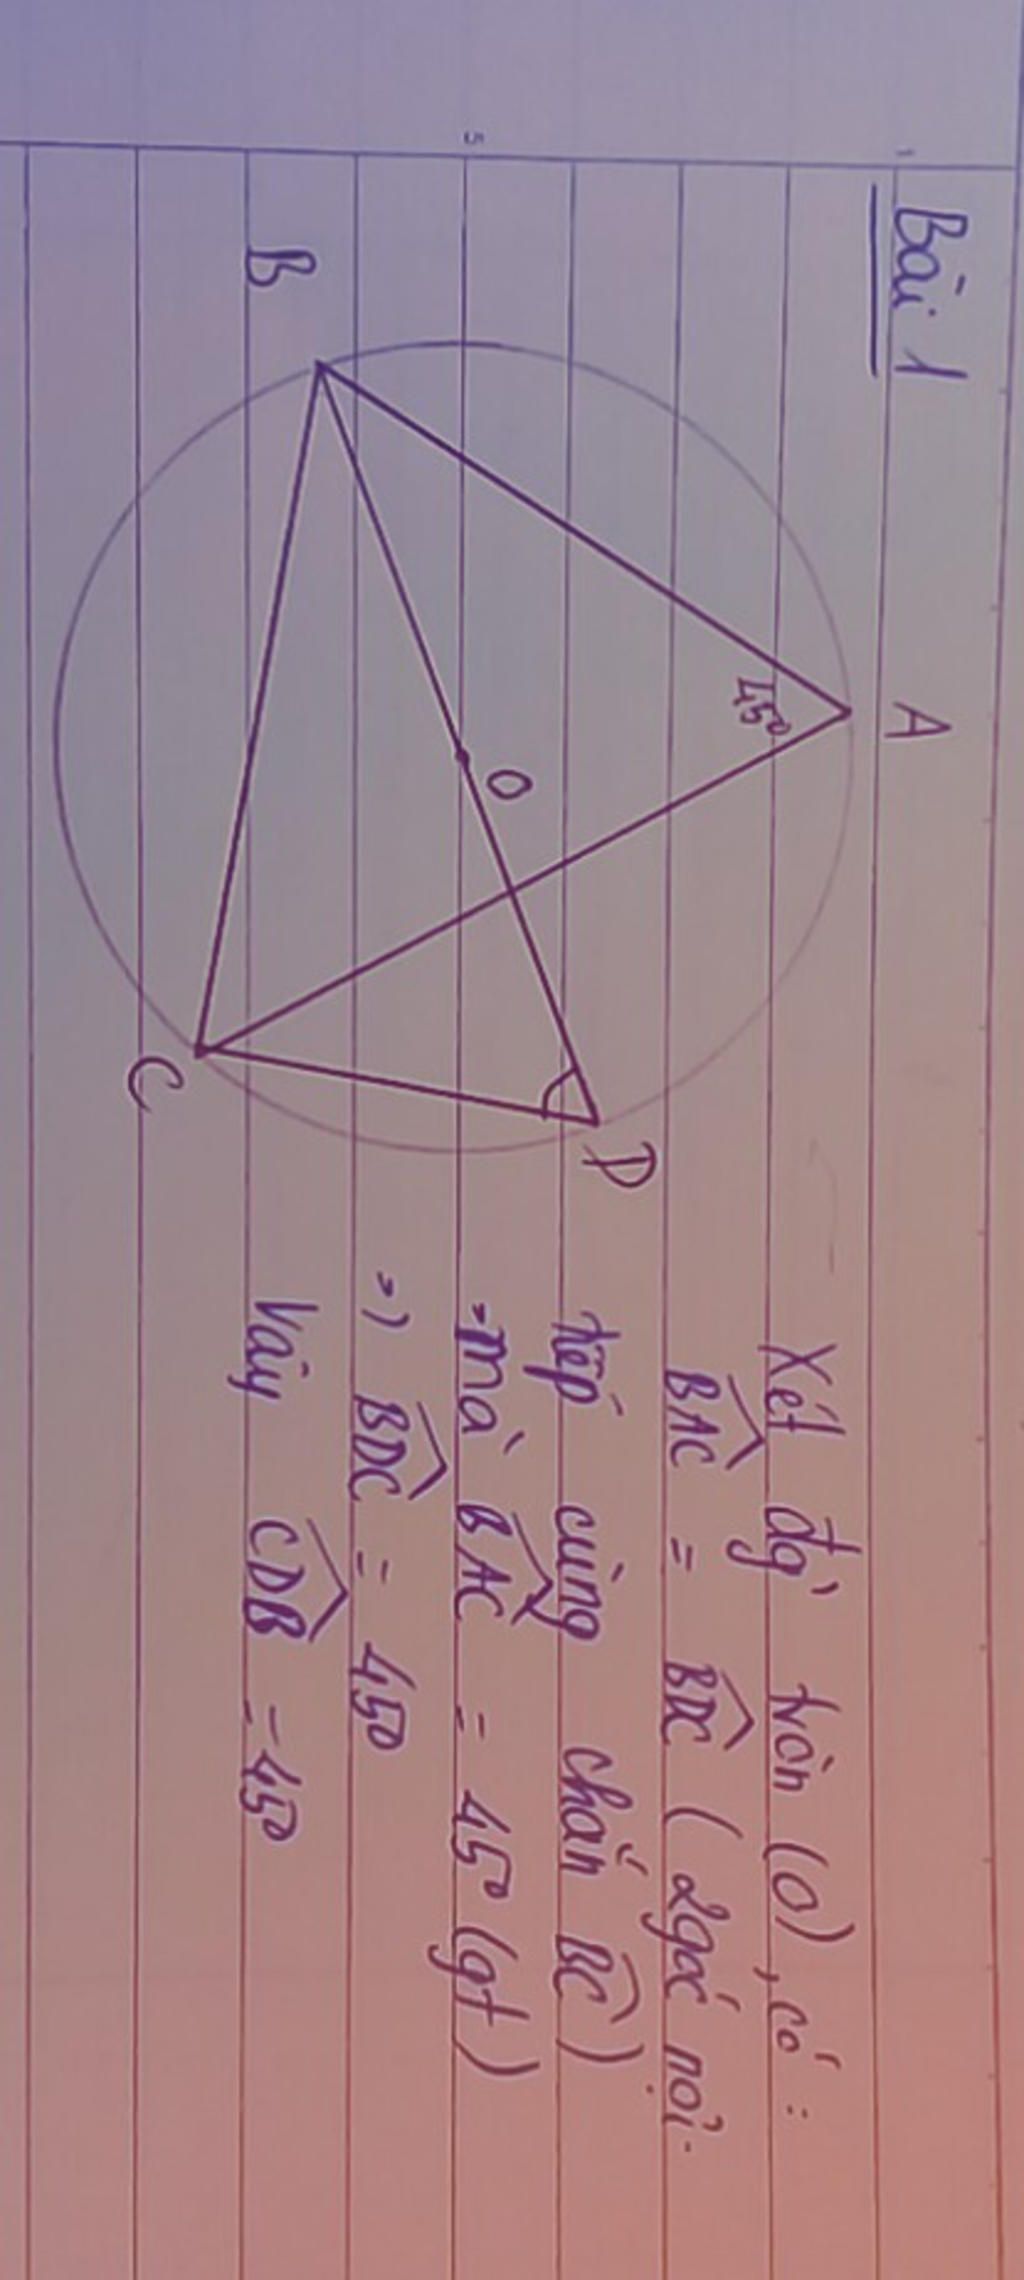 Bài 1
A
45°
B
O
D
C
Xét đg` tròn (O), có :
BAC = BDC ( 2 góc nội
tiếp cùng chắn BC )
mà BAC = 45° (gt)
=) BDC = 45°
Vậy CDB = 45°